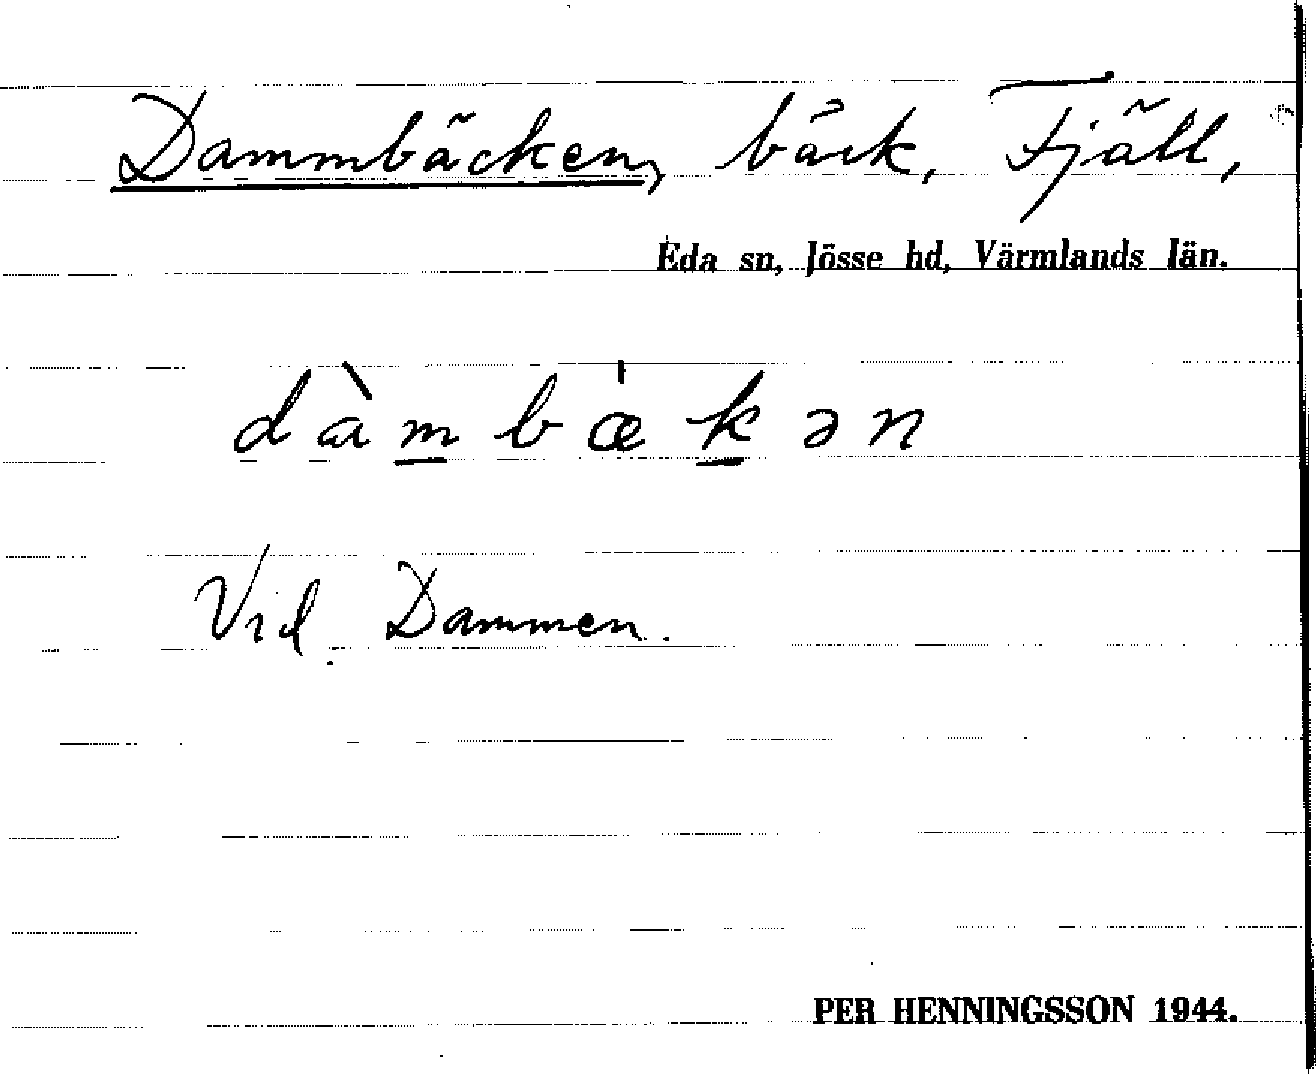 Dammbäcken, bäck, Fjäll,
Eda sn, Jösse hd, Värmlands län.
dàm̲bæ̍k̲ən
Vid Dammen.
PER HENNINGSSON 1944.